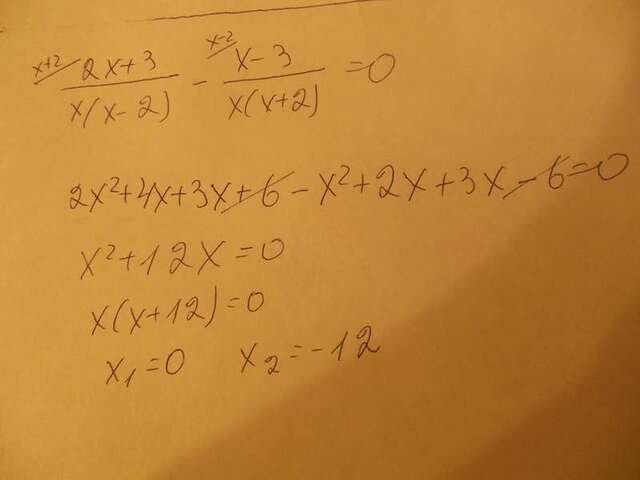 x+2/ 2x+3 / x(x-2) - x-2/ x-3 / x(x+2) = 0
2x²+4x+3x+6-x²+2x+3x-6=0
x²+12x=0
x(x+12)=0
x₁=0 x₂=-12